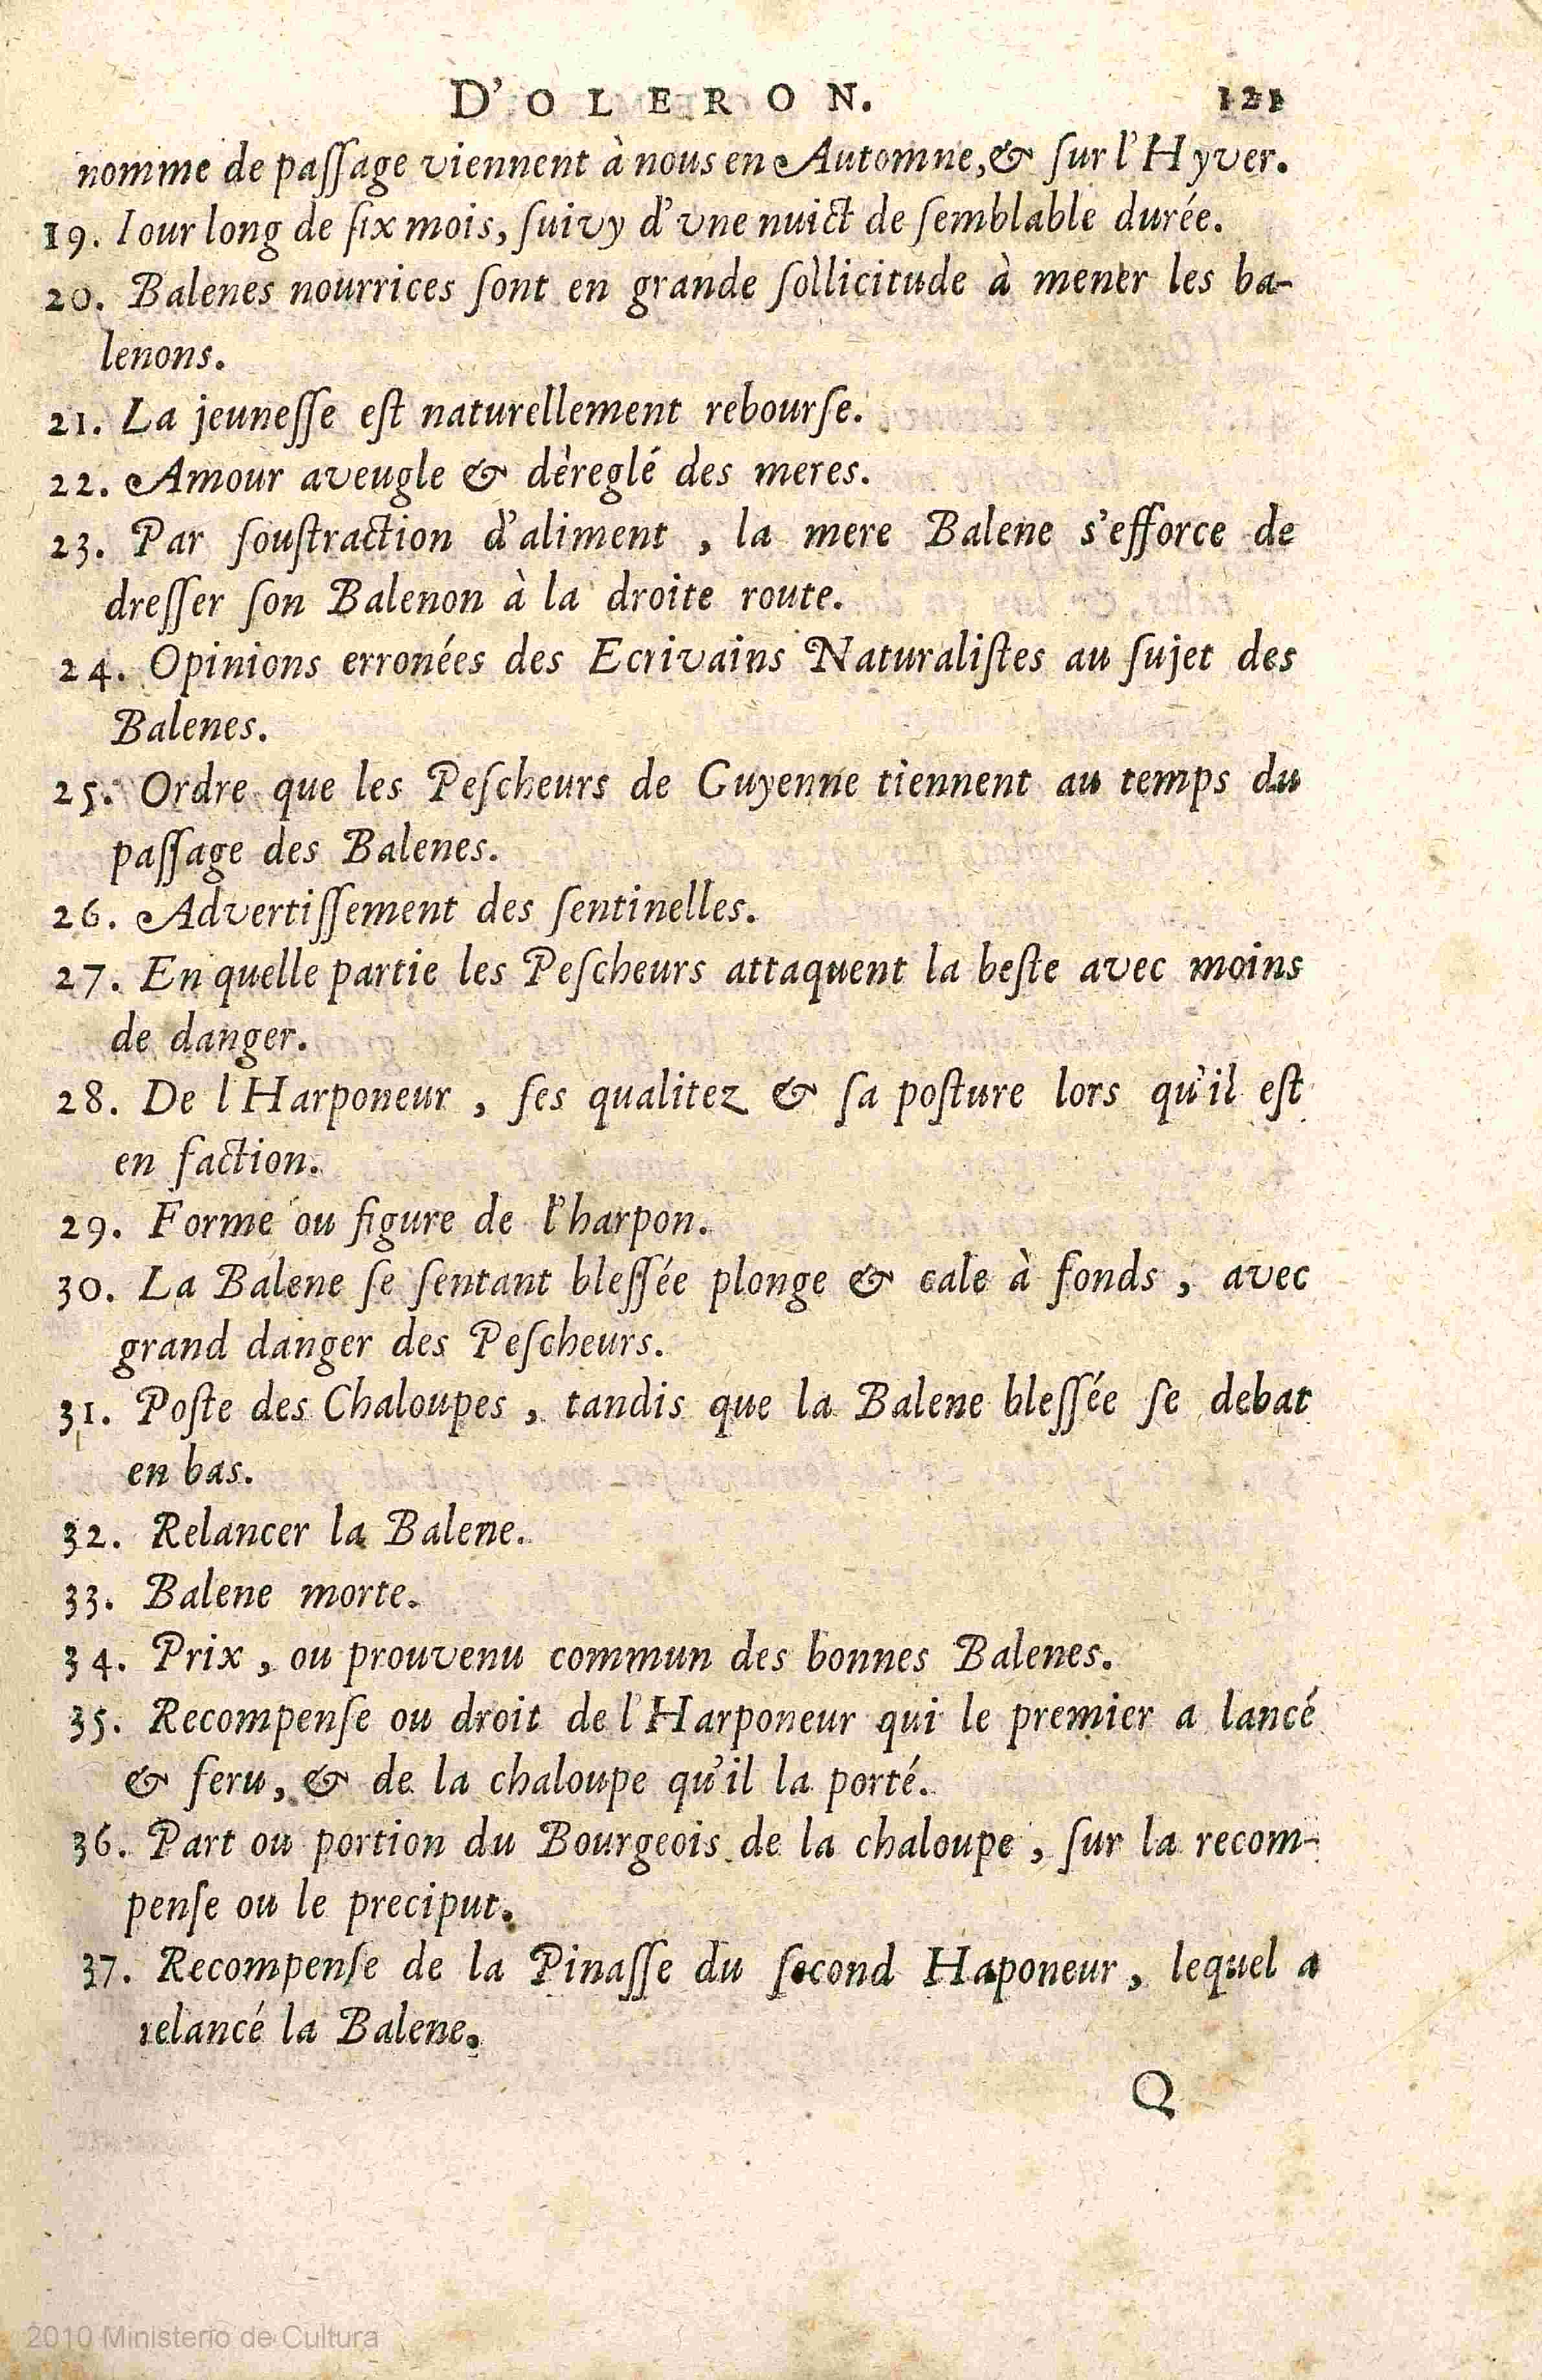 D'OLERON. 121
nomme de paſſage viennent à nous en Automne, & ſur l'Hyver.
19. Iour long de ſix mois, ſuivy d'vne nuict de ſemblable durée.
20. Balenes nourrices ſont en grande ſollicitude à mener les ba-
lenons.
21. La jeuneſſe eſt naturellement rebourſe.
22. Amour aveugle & déreglé des meres.
23. Par ſouſtraction d'aliment, la mere Balene s'efforce de
dreſſer ſon Balenon à la droite route.
24. Opinions erronées des Ecrivains Naturaliſtes au ſujet des
Balenes.
25. Ordre que les Peſcheurs de Guyenne tiennent au temps du
paſſage des Balenes.
26. Advertiſſement des ſentinelles.
27. En quelle partie les Peſcheurs attaquent la beſte avec moins
de danger.
28. De l'Harponeur, ſes qualitez & ſa poſture lors qu'il eſt
en faction.
29. Forme ou figure de l'harpon.
30. La Balene ſe ſentant bleſſée plonge & cale à fonds, avec
grand danger des Peſcheurs.
31. Poſte des Chaloupes, tandis que la Balene bleſſée ſe debat
en bas.
32. Relancer la Balene.
33. Balene morte.
34. Prix, ou prouvenu commun des bonnes Balenes.
35. Recompenſe ou droit de l'Harponeur qui le premier a lancé
& feru, & de la chaloupe qu'il la porté.
36. Part ou portion du Bourgeois de la chaloupe, ſur la recom-
penſe ou le preciput.
37. Recompenſe de la Pinaſſe du ſecond Haponeur, lequel a
relancé la Balene.
Q
2010 Ministerio de Cultura